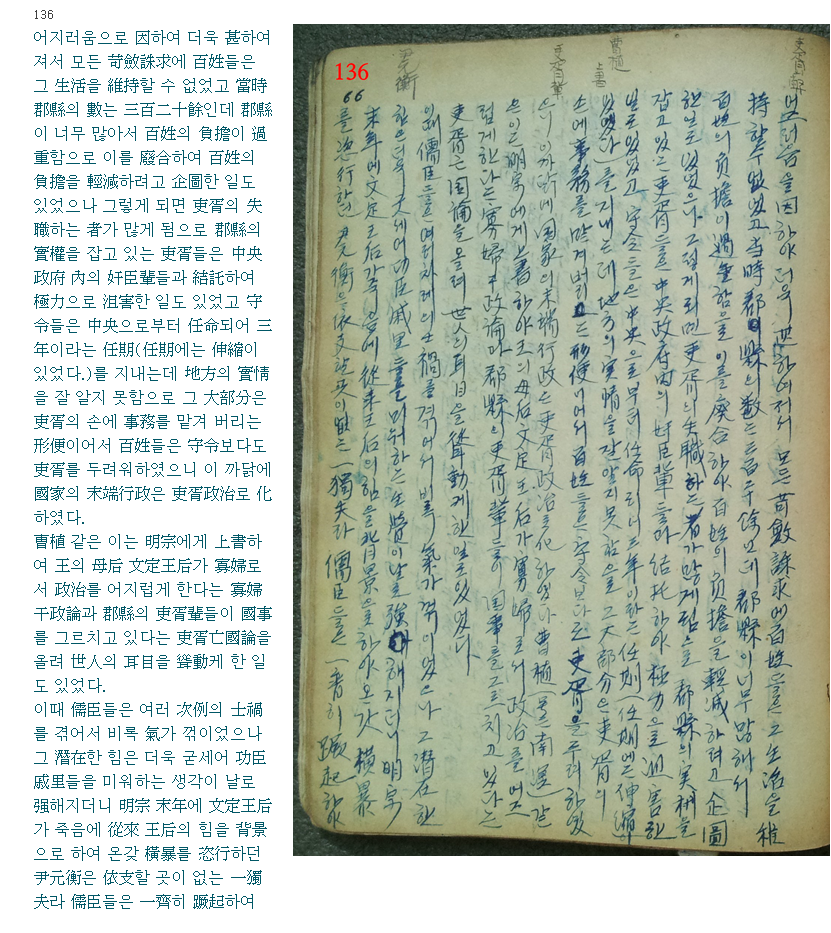 136
어지러움으로 因하여 더욱 甚하여
져서 모든 苛斂誅求에 百姓들은
그 生活을 維持할 수 없었고 當時
郡縣의 數는 三百二十餘인데 郡縣
이 너무 많아서 百姓의 負擔이 過
重함으로 이를 廢合하여 百姓의
負擔을 輕減하려고 企圖한 일도
있었으나 그렇게 되면 吏胥의 失
職하는 者가 많게 됨으로 郡縣의
實權을 잡고 있는 吏胥들은 中央
政府 內의 奸臣輩들과 結託하여
極力으로 沮害한 일도 있었고 守
令들은 中央으로부터 任命되어 三
年이라는 任期(任期에는 伸縮이
있었다.)를 지내는데 地方의 實情
을 잘 알지 못함으로 그 大部分은
吏胥의 손에 事務를 맡겨 버리는
形便이어서 百姓들은 守令보다도
吏胥를 두려워하였으니 이 까닭에
國家의 末端行政은 吏胥政治로 化
하였다.
曺植 같은 이는 明宗에게 上書하
여 王의 母后 文定王后가 寡婦로
서 政治를 어지럽게 한다는 寡婦
干政論과 郡縣의 吏胥輩들이 國事
를 그르치고 있다는 吏胥亡國論을
올려 世人의 耳目을 聳動케 한 일
도 있었다.
이때 儒臣들은 여러 次例의 士禍
를 겪어서 비록 氣가 꺾이었으나
그 潛在한 힘은 더욱 굳세어 功臣
戚里들을 미워하는 생각이 날로
强해지더니 明宗 末年에 文定王后
가 죽음에 從來 王后의 힘을 背景
으로 하여 온갖 橫暴를 恣行하던
尹元衡은 依支할 곳이 없는 一獨
夫라 儒臣들은 一齊히 蹶起하여
136
66
曹植
上書
어즈러음을 因하야 더욱 甚하여져서 모든 苛斂誅求에 百姓들은 그 生活을 維
持할수 없었고 当時 郡縣의 数는 三百二十餘인데 郡縣이 너무 많해서
百姓의 負擔이 過重함으로 이를 廃合하야 百姓의 負擔을 軽減하려고 企圖
한일도 있었으나 그렇게 되면 吏胥의 失職하는 者가 많게 됨으로 郡縣의 実権을
잡고 있는 吏胥들은 中央政府内의 奸臣輩들과 結托하야 極力으로 沮害한
일도 있었고 守令들은 中央으로부터 任命되여 三年이라는 任期(任期에는 伸縮이
있었다)를 지내는데 地方의 実情을 잘 알지 못함으로 그 大部分은 吏胥의
손에 事務를 맡겨버리는 形便이어서 百姓들은 守令보다도 吏胥를 두려하였
으니 이까닭에 国家의 末端行政은 吏胥政治로 化하였다 曹植(号는 南冥)같
은이는 明宗에게 上書하야 王의 母后 文定王后가 寡婦로서 政治를 어즈
럽게한다는 寡婦干政論과 郡縣의 吏胥輩들이 国事를 그르치고 있다는
吏胥亡国論을 올려 世人의 耳目을 聳動게한 일도 있었다
이때 儒臣들은 여러차례의 士禍를 겪어서 비록 氣가 꺾이었으나 그 潜在한
힘은 더욱 굳세여 功臣戚里들을 미워하는 生覺이 날로 強해지더니 明宗
末年에 文定王后가 죽음에 從來 王后의 힘을 背景으로하야 온갓 橫暴
를 恣行하던 尹元衡은 依支할곳이 없는 一獨夫라 儒臣들은 一齊히 蹶起하야